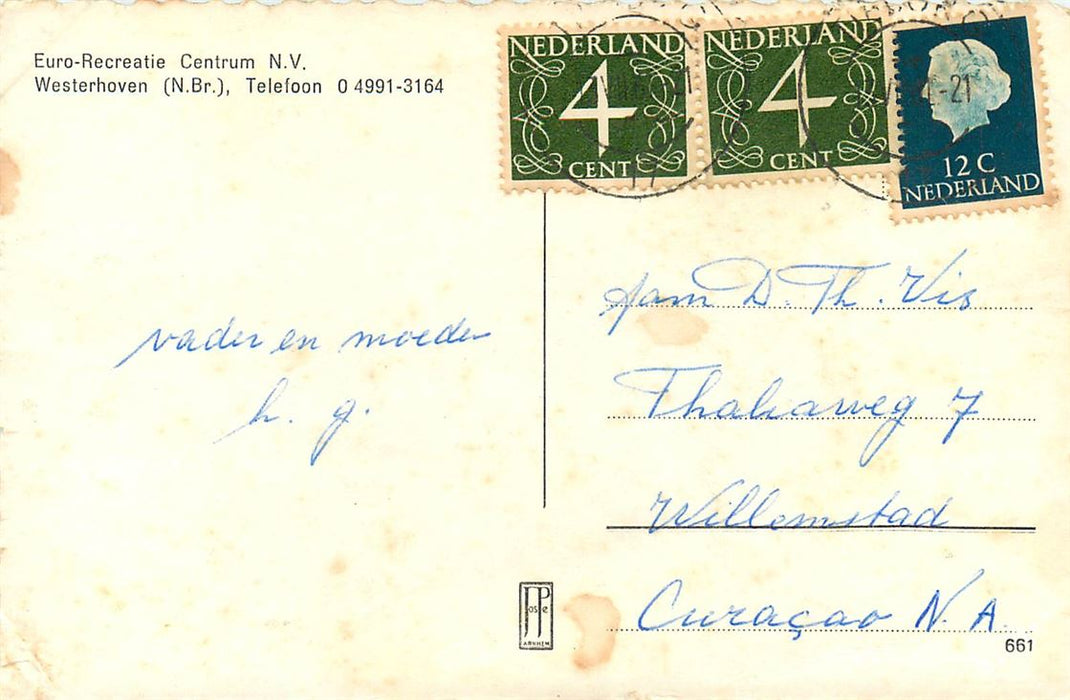 Euro-Recreatie Centrum N.V.
Westerhoven (N.Br.), Telefoon 0 4991-3164
NEDERLAND
4
CENT
NEDERLAND
4
CENT
12 C
NEDERLAND
vader en moeder
h. g.
fam D. Th. Vis
Thaliaweg 7
Willemstad
Curaçao N.A.
JosPe
ARNHEM
661